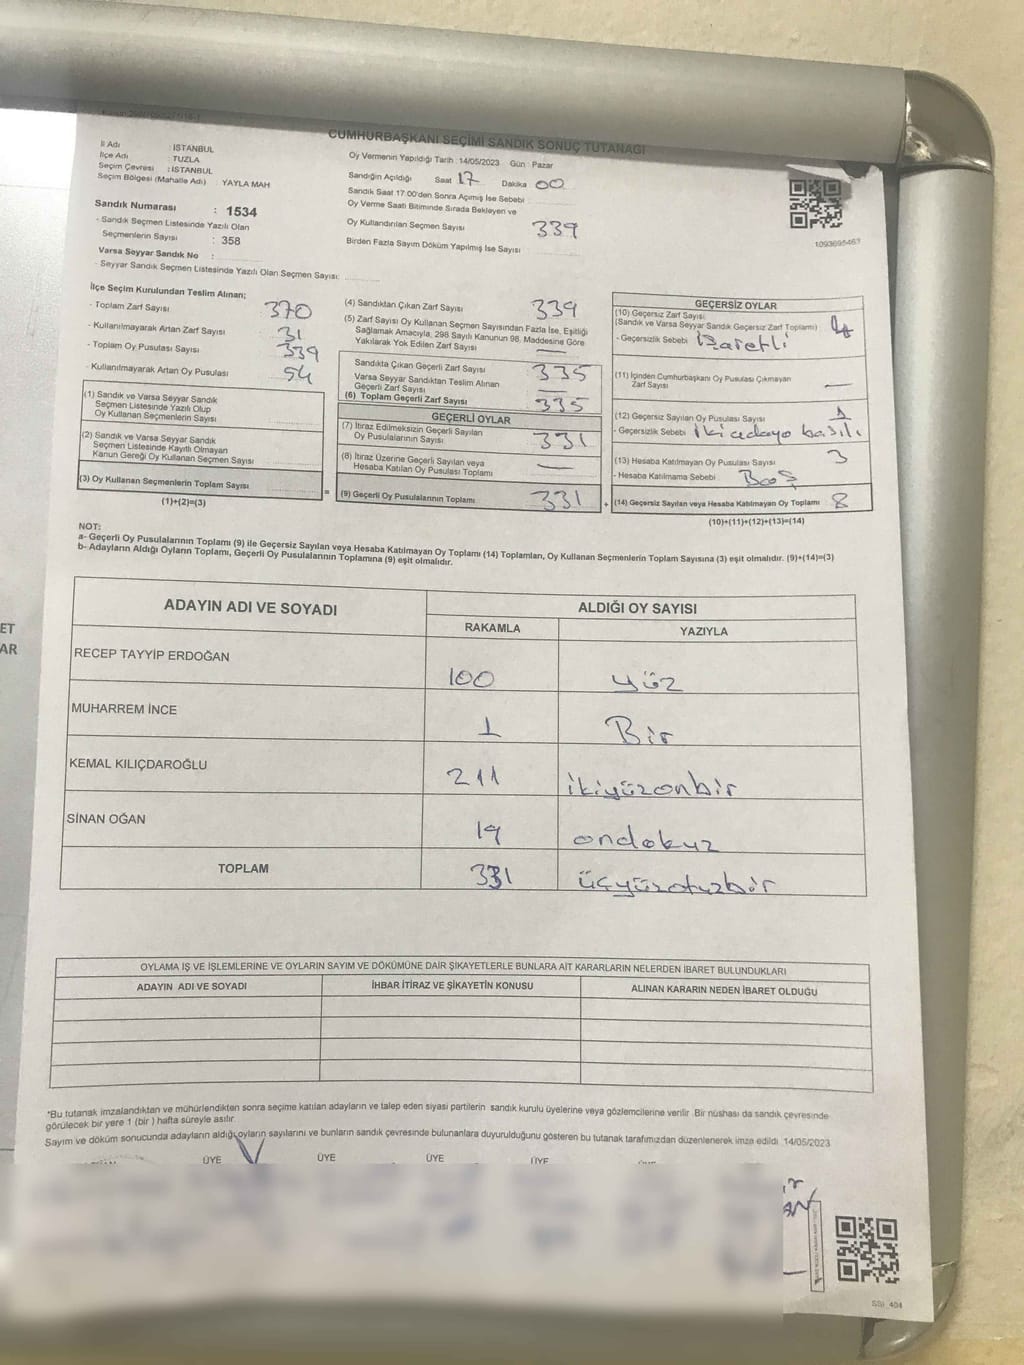 CUMHURBAŞKANI SEÇİMİ SANDIK SONUÇ TUTANAĞI
İl Adı : İSTANBUL
İlçe Adı : TUZLA
Seçim Çevresi : İSTANBUL
Seçim Bölgesi (Mahalle Adı) : YAYLA MAH
Sandık Numarası : 1534
- Sandık Seçmen Listesinde Yazılı Olan
Seçmenlerin Sayısı : 358
Varsa Seyyar Sandık No :
- Seyyar Sandık Seçmen Listesinde Yazılı Olan Seçmen Sayısı:
Oy Vermenin Yapıldığı Tarih :14/05/2023 Gün : Pazar
Sandığın Açıldığı Saat 17 Dakika 00
Sandık Saat 17.00'den Sonra Açımış İse Sebebi
Oy Verme Saati Bitiminde Sırada Bekleyen ve
Oy Kullandırılan Seçmen Sayısı 339
Birden Fazla Sayım Döküm Yapılmış İse Sayısı
1093695463
İlçe Seçim Kurulundan Teslim Alınan;
- Toplam Zarf Sayısı 370
- Kullanılmayarak Artan Zarf Sayısı 31
- Toplam Oy Pusulası Sayısı 339
- Kullanılmayarak Artan Oy Pusulası 54
(1) Sandık ve Varsa Seyyar Sandık
Seçmen Listesinde Yazılı Olup
Oy Kullanan Seçmenlerin Sayısı
(2) Sandık ve Varsa Seyyar Sandık
Seçmen Listesinde Kayıtlı Olmayan
Kanun Gereği Oy Kullanan Seçmen Sayısı
(3) Oy Kullanan Seçmenlerin Toplam Sayısı
(1)+(2)=(3)
(4) Sandıktan Çıkan Zarf Sayısı 339
(5) Zarf Sayısı Oy Kullanan Seçmen Sayısından Fazla İse, Eşitliği
Sağlamak Amacıyla, 298 Sayılı Kanunun 98. Maddesine Göre
Yakılarak Yok Edilen Zarf Sayısı —
Sandıkta Çıkan Geçerli Zarf Sayısı 335
Varsa Seyyar Sandıktan Teslim Alınan
Geçerli Zarf Sayısı —
(6) Toplam Geçerli Zarf Sayısı 335
GEÇERLİ OYLAR
(7) İtiraz Edilmeksizin Geçerli Sayılan
Oy Pusulalarının Sayısı 331
(8) İtiraz Üzerine Geçerli Sayılan veya
Hesaba Katılan Oy Pusulası Toplamı —
= (9) Geçerli Oy Pusulalarının Toplamı 331
GEÇERSİZ OYLAR
(10) Geçersiz Zarf Sayısı
(Sandık ve Varsa Seyyar Sandık Geçersiz Zarf Toplamı) 4
- Geçersizlik Sebebi İşaretli
(11) İçinden Cumhurbaşkanı Oy Pusulası Çıkmayan
Zarf Sayısı —
(12) Geçersiz Sayılan Oy Pusulası Sayısı 1
- Geçersizlik Sebebi iki adaya basılı
(13) Hesaba Katılmayan Oy Pusulası Sayısı 3
- Hesaba Katılmama Sebebi Boş
+ (14) Geçersiz Sayılan veya Hesaba Katılmayan Oy Toplamı 8
(10)+(11)+(12)+(13)=(14)
NOT:
a- Geçerli Oy Pusulalarının Toplamı (9) ile Geçersiz Sayılan veya Hesaba Katılmayan Oy Toplamı (14) Toplamları, Oy Kullanan Seçmenlerin Toplam Sayısına (3) eşit olmalıdır. (9)+(14)=(3)
b- Adayların Aldığı Oyların Toplamı, Geçerli Oy Pusulalarının Toplamına (9) eşit olmalıdır.
ADAYIN ADI VE SOYADI ALDIĞI OY SAYISI
RAKAMLA YAZIYLA
RECEP TAYYİP ERDOĞAN 100 yüz
MUHARREM İNCE 1 Bir
KEMAL KILIÇDAROĞLU 211 ikiyüzonbir
SİNAN OĞAN 19 ondokuz
TOPLAM 331 üçyüzotuzbir
OYLAMA İŞ VE İŞLEMLERİNE VE OYLARIN SAYIM VE DÖKÜMÜNE DAİR ŞİKAYETLERLE BUNLARA AİT KARARLARIN NELERDEN İBARET BULUNDUKLARI
ADAYIN ADI VE SOYADI İHBAR İTİRAZ VE ŞİKAYETİN KONUSU ALINAN KARARIN NEDEN İBARET OLDUĞU
*Bu tutanak imzalandıktan ve mühürlendikten sonra seçime katılan adayların ve talep eden siyasi partilerin sandık kurulu üyelerine veya gözlemcilerine verilir. Bir nüshası da sandık çevresinde
görülecek bir yere 1 (bir ) hafta süreyle asılır.
Sayım ve döküm sonucunda adayların aldığı oyların sayılarını ve bunların sandık çevresinde bulunanlara duyurulduğunu gösteren bu tutanak tarafımızdan düzenlenerek imza edildi. 14/05/2023
ÜYE ÜYE ÜYE ÜYE
SSI 404
ET
AR